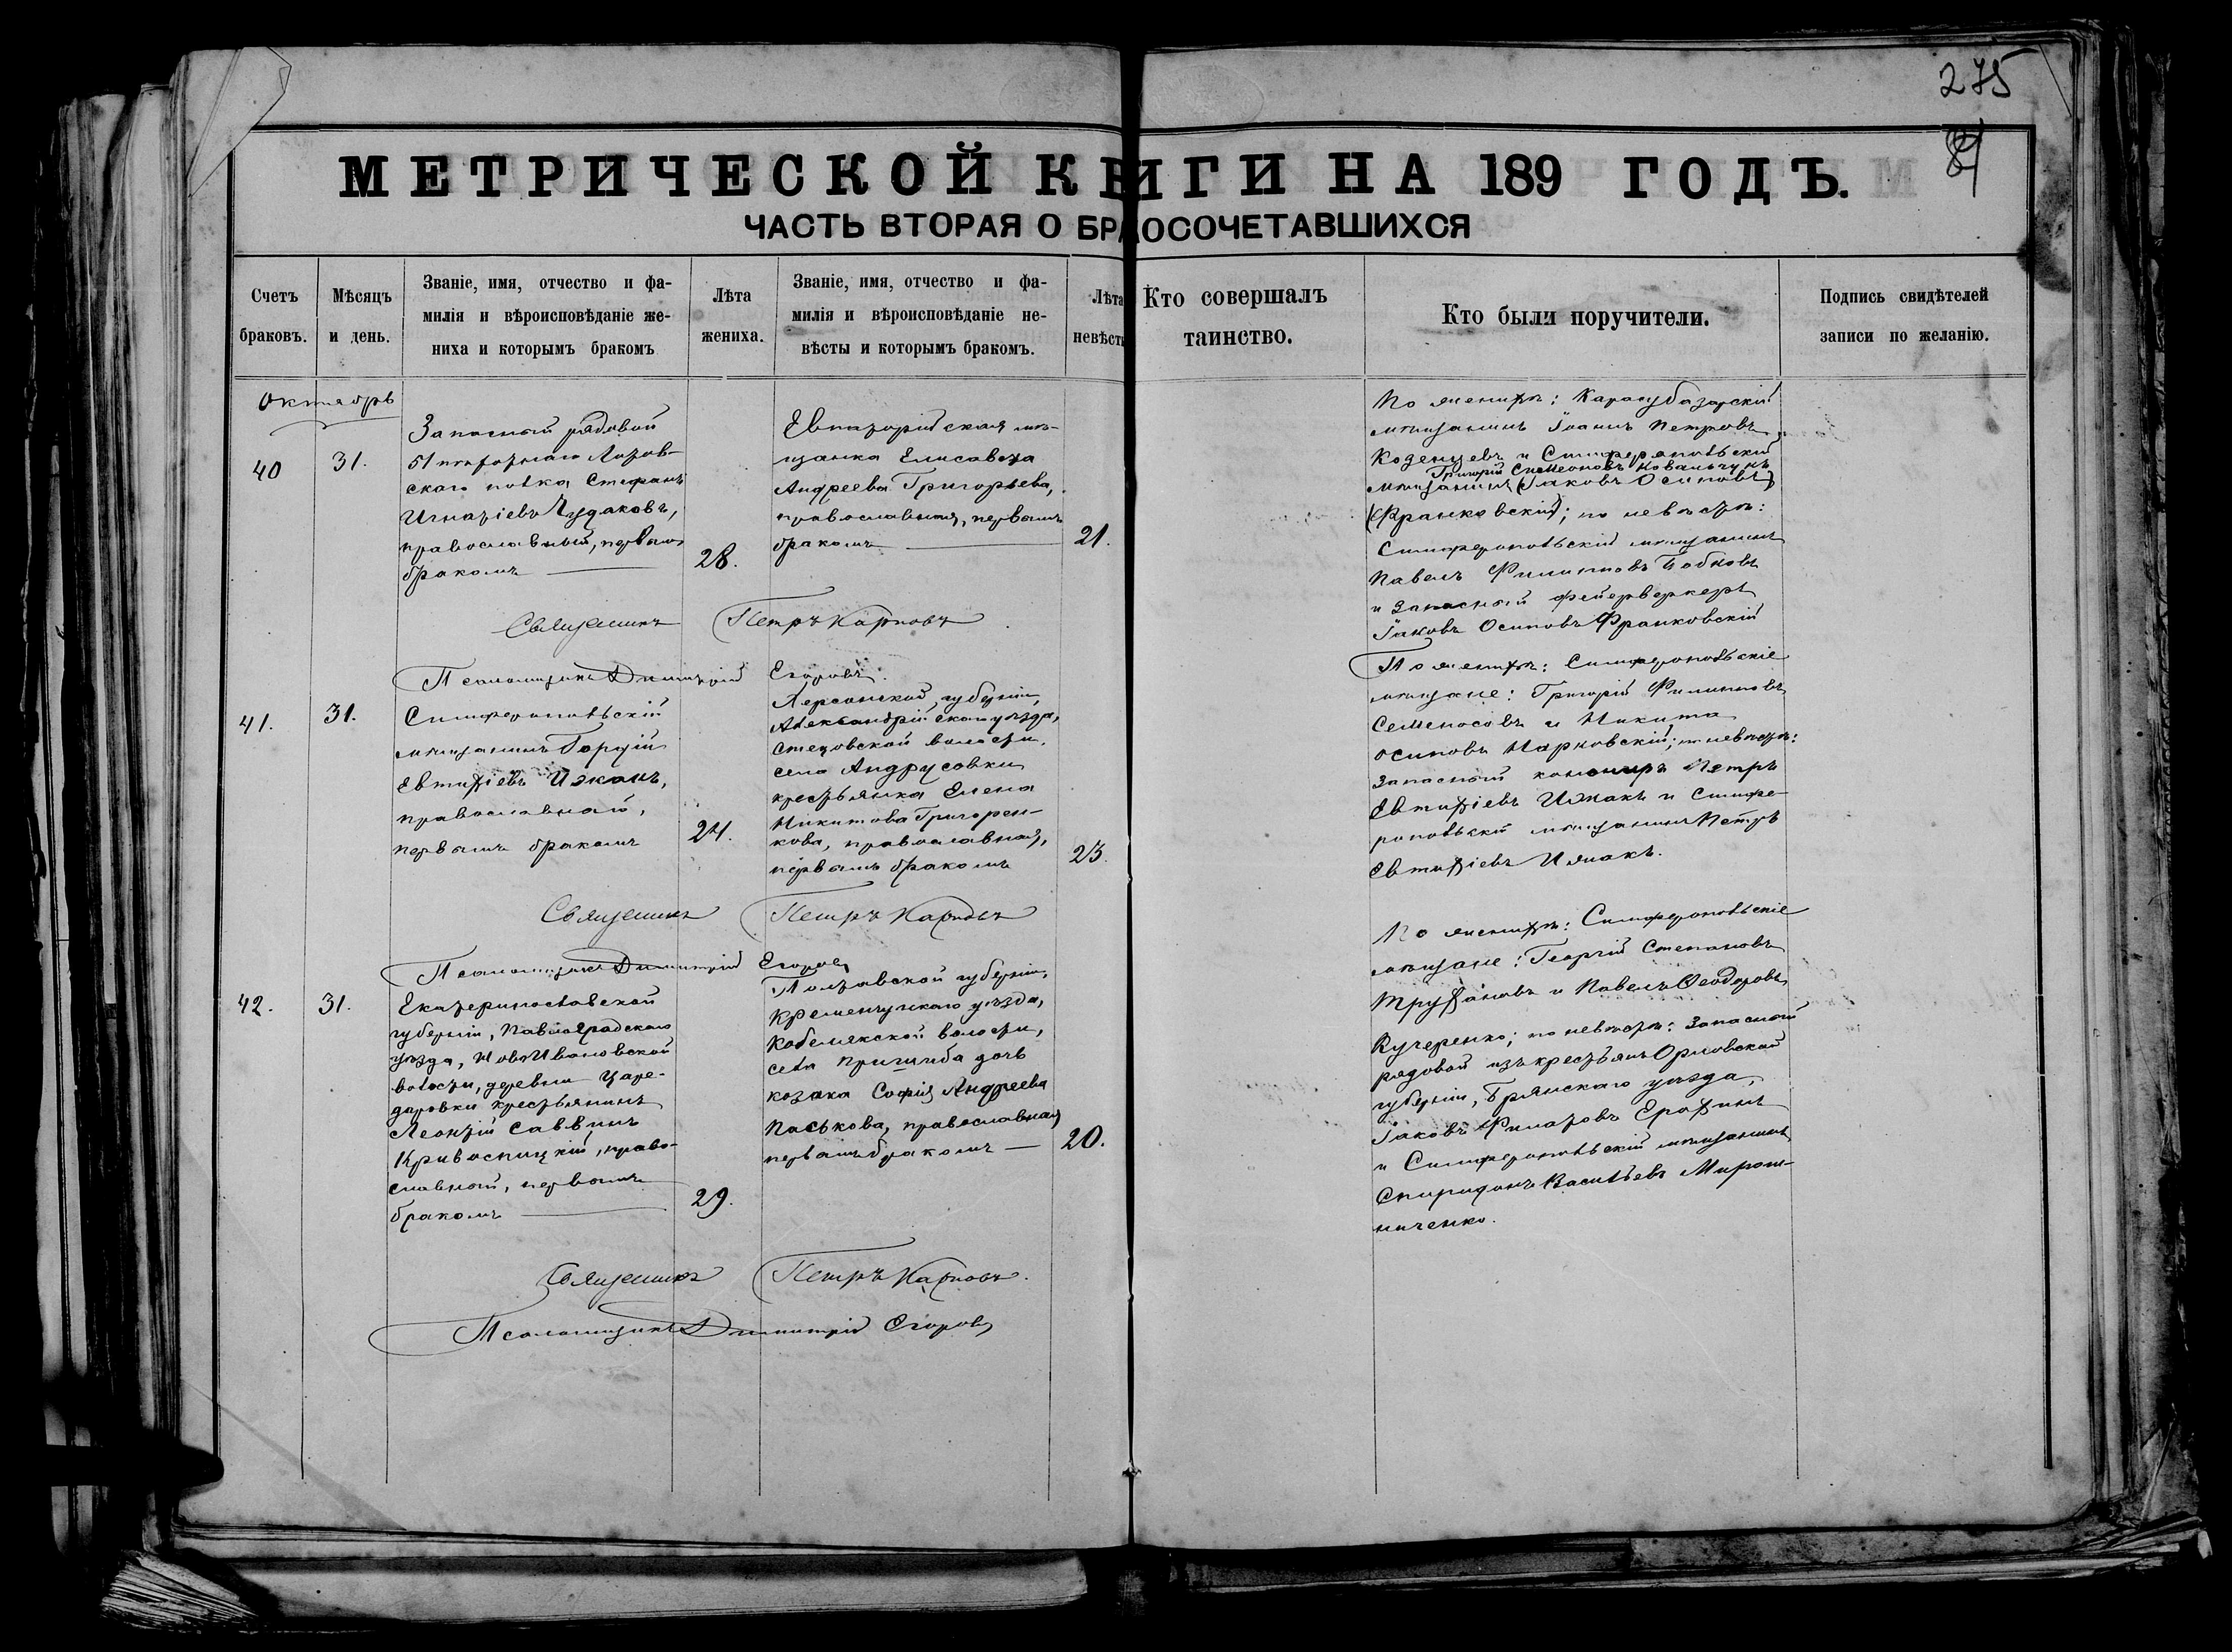 275
МЕТРИЧЕСКОЙ КНИГИ НА 189 ГОДЪ.
ЧАСТЬ ВТОРАЯ О БРАКОСОЧЕТАВШИХСЯ
Счетъ
браковъ.
Мѣсяцъ
и день.
Званіе, имя, отчество и фа-
милія и вѣроисповѣданіе же-
ниха и которымъ бракомъ
Лѣта
жениха.
Званіе, имя, отчество и фа-
милія и вѣроисповѣданіе не-
вѣсты и которымъ бракомъ.
Лѣта
невѣсты
Кто совершалъ
таинство.
Кто были поручители.
Подпись свидѣтелей
записи по желанію.
Октябрь
40
31.
Запасный рядовой
51 пѣхотнаго Литов-
скаго полка Стефанъ
Игнатіевъ Чудаковъ,
православный, первымъ
бракомъ
28.
Евпаторійская мѣ-
щанка Елисавета
Андреева Григорьева,
православная, первымъ
бракомъ
21.
По женихѣ: Карасубазарскій
мѣщанинъ Іоаннъ Петровъ
Коденцевъ и Симферопольскій
Григорій Симеоновъ Ковальчукъ
мѣщанинъ (Іаковъ Осиповъ)
(Франковскій); по невѣстѣ:
Симферопольскій мѣщанинъ
Павелъ Филипповъ
и запасный фейерверкеръ
Іаковъ Осиповъ Франковскій
Священникъ Петръ Карповъ
Псаломщикъ Димитрій Егоровъ.
41.
31.
Симферопольскій
мѣщанинъ Гордій
Евтихіевъ Ижакъ,
православный,
первымъ бракомъ
24.
Херсонской губерніи,
Александрійскаго уѣзда,
Стецовской волости,
села Андрусовки
крестьянка Елена
Никитова Григорен-
кова, православная,
первымъ бракомъ
23.
По женихѣ: Симферопольскіе
мѣщане: Григорій Филипповъ
Семеносовъ и Никита
Осиповъ Марковскій; по невѣстѣ:
запасный канониръ Петръ
Евтихіевъ Ижакъ и Симфе-
ропольскій мѣщанинъ Петръ
Евтихіевъ Ижакъ.
Священникъ Петръ Карповъ
Псаломщикъ Димитрій Егоровъ
42.
31.
Екатеринославской
губерніи, Павлоградскаго
уѣзда, Ново Ивановской
волости, деревни Царе-
даровки крестьянинъ
Леонтій Саввинъ
Кривоспицкій, право-
славный, первымъ
бракомъ
29.
Полтавской губерніи,
Кременчугскаго уѣзда,
Кобелякской волости,
села Пригиба дочь
козака Софія Андреева
Паськова, православная
первымъ бракомъ
20.
По женихѣ: Симферопольскіе
мѣщане: Георгій Степановъ
Труфановъ и Павелъ Ѳеодоровъ
Кучеренко; по невѣстѣ: запасный
рядовой изъ крестьянъ Орловской
губерніи, Брянскаго уѣзда,
Іаковъ Филатовъ Ерохинъ
и Симферопольскій мѣщанинъ
Спиридонъ Васильевъ Мирош-
ниченко.
Священникъ Петръ Карповъ.
Псаломщикъ Димитрій Егоровъ